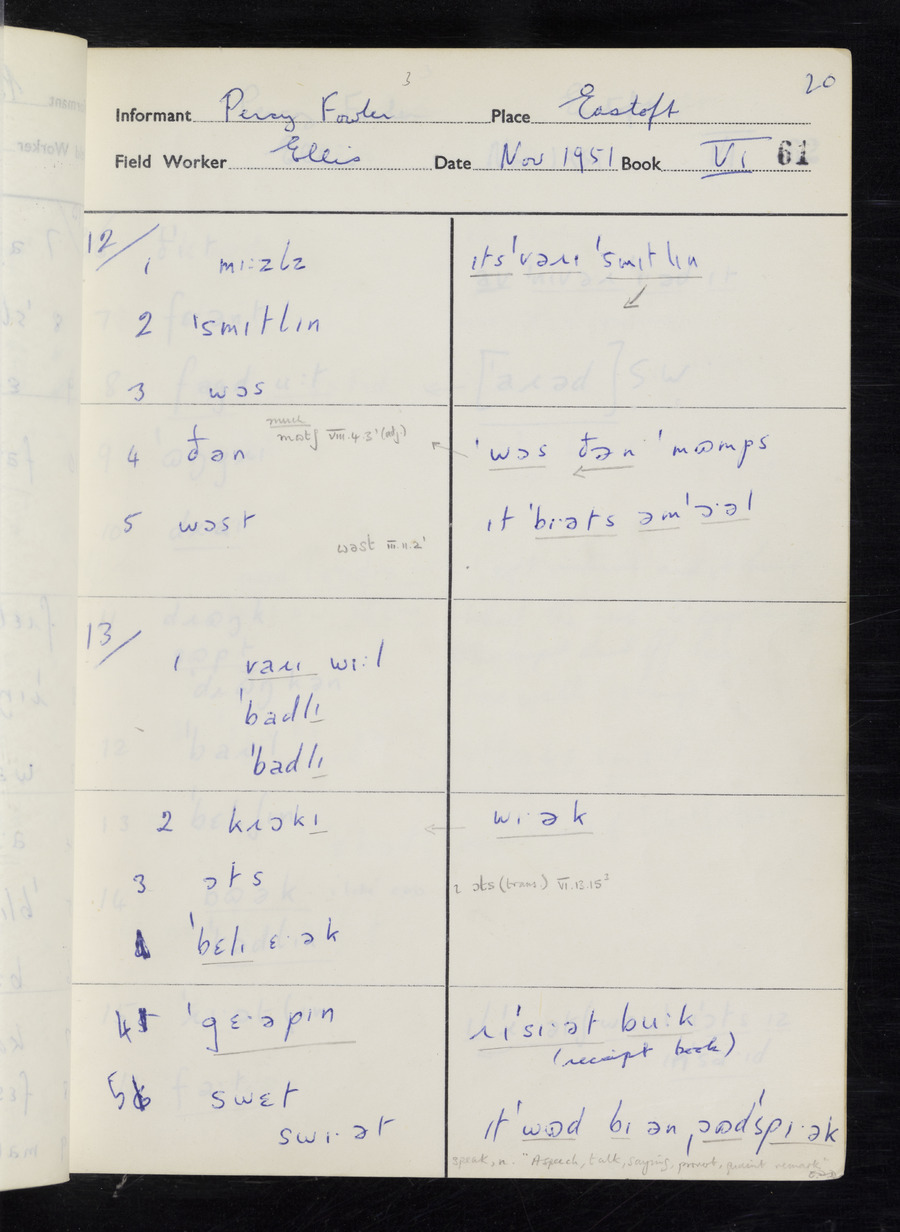 3
20
Informant Percy Fowler Place Eastoft
Field Worker Ellis Date Nov 1951 Book VI 61
12/
1 mɪːzlz ɪts ˈvəɹɪ ˈsmɪtlɪn
2 ˈsmɪtlɪn
3 wɔs
much
4 ðən matʃ VIII.4.3' (adj) ˈwɔs ðən ˈmɷmps
5 wɔst ɪt ˈbɪ·əts əm ˈɔ·əl
wəst III.11.2'
13/
1 vaɹɪ wɪːl
ˈbadlɪ
ˈbadlɪ
2 kɹɔkɪ wɪ·ək
3 ɔts ɔts (trans) VI.13.15²
ˈbɛlɪ ɛ·ək
4 ˈgɛ·əpɪn ɹɪˈsɪ·ət buːk
(receipt book)
5 swɛt
swɪ·ət ɪt ˈwɷd bɪ ən ˌɔəd ˈspɪ·ək
speak, n. "A speech, talk, saying, proverb, quaint remark"